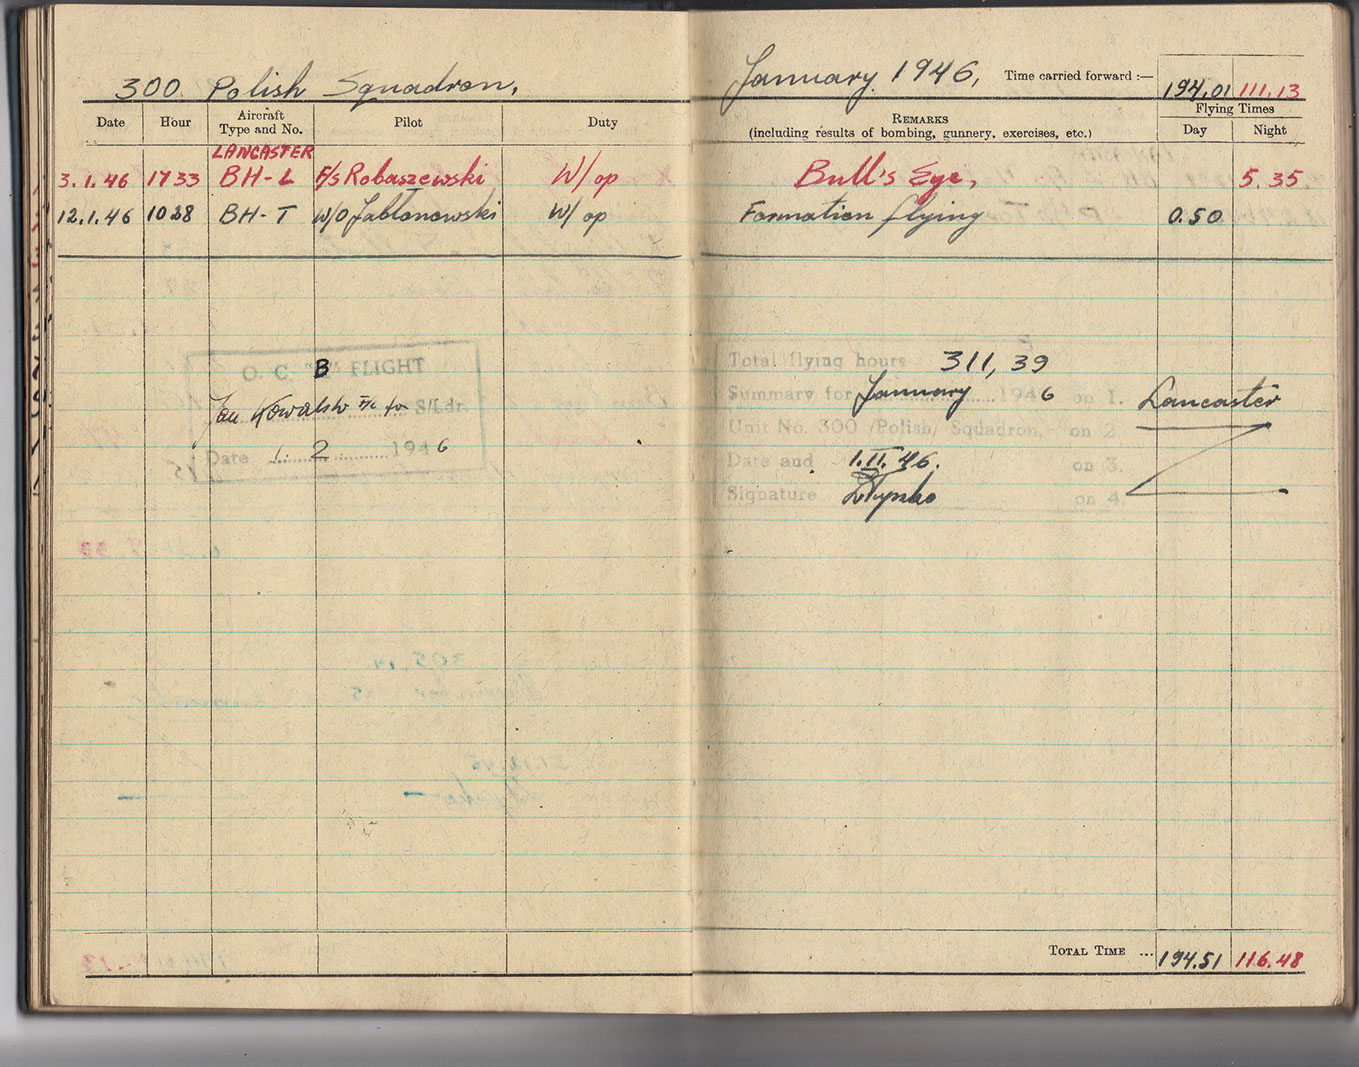 300 Polish Squadron,
January 1946, Time carried forward :— 194.01 111.13
Date Hour Aircraft Type and No. Pilot Duty
REMARKS (including results of bombing, gunnery, exercises, etc.) Flying Times Day Night
LANCASTER
3.1.46 1733 BH-L F/S Robaszewski W/op Bull's Eye, 5.35
12.1.46 1028 BH-T W/O Jabłonowski W/op Formation flying 0.50
O. C. B FLIGHT
Jan Kowalski F/L for S/Ldr
Date 1. 2 1946
Total flying hours 311,39
Summary for January 1946 on 1. Lancaster
Unit No. 300 /Polish/ Squadron, on 2.
Date and 1.II.46. on 3.
Signature on 4.
TOTAL TIME ... 194.51 116.48